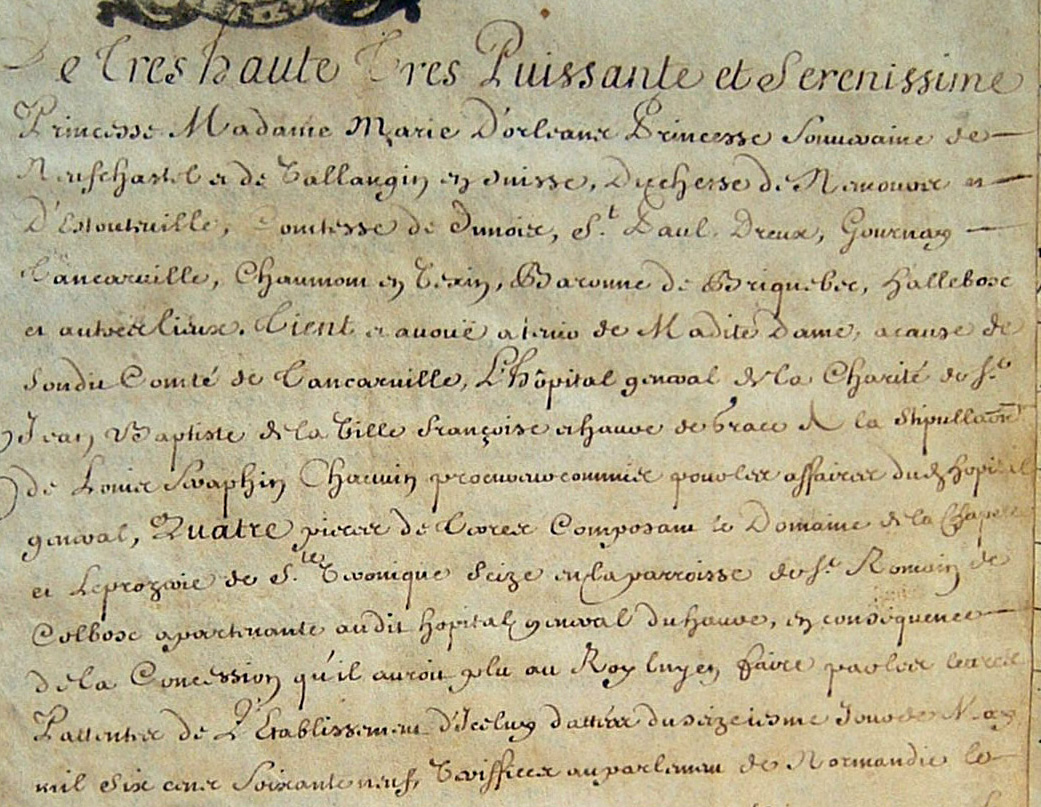 De Tres haute Tres Puissante et Serenissime
Princesse Madame Marie D'orleans Princesse Souveraine de
Neufchastel et de Vallangin en Suisse, Duchesse de Nemours et
D'Estouteville, Comtesse de Dunois, St. Paul, Dreux, Gournay
Tancarville, Chaumont en Vexin, Baronne de Briquebec, hallebosc
et autres lieux. Tient et avouë a tenir de Madite Dame, a cause de
Sondit Comté de Tancarville, L'hôpital general de la Charité de St.
Jean Baptiste de la Ville françoise et havre de Grace de la Stipullaõn
de Louis Seraphin Charuin procureur commis pour les affaires dud. hopital
general, Quatre pieces de terres Composant le Domaine de la Chapelle
et Leprozerie de Ste. Veronique Seize en la parroisse de St. Romain de
Colbosc apartenante audit hopital general du havre, en conséquence
de la Concession qu'il auroit plu au Roy luy en faire par les lettres
Pattentes de L'Etablissement d'Iceluy dattées du seiziesme Jour de May
mil six cens Soixante neuf, Veriffiées au parlement de Normandie le